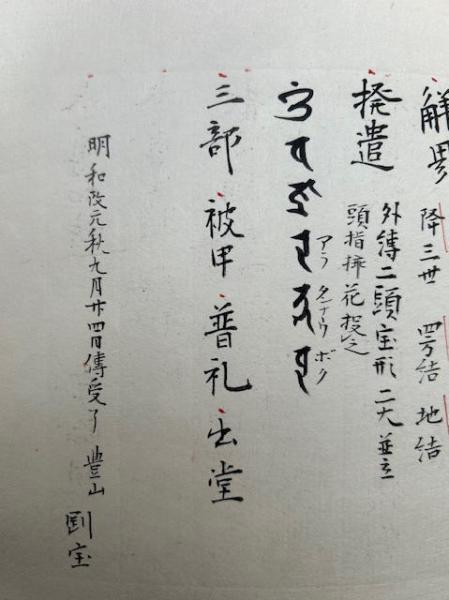 觧界 降三世 四方結 地結
撥遣 外縛二頭宝形 二大並立
頭指挿花投之
アラ タナウ ボク
三部 被甲 普礼 出堂
明和改元秋九月廿四日傳受了 豊山 剛宝